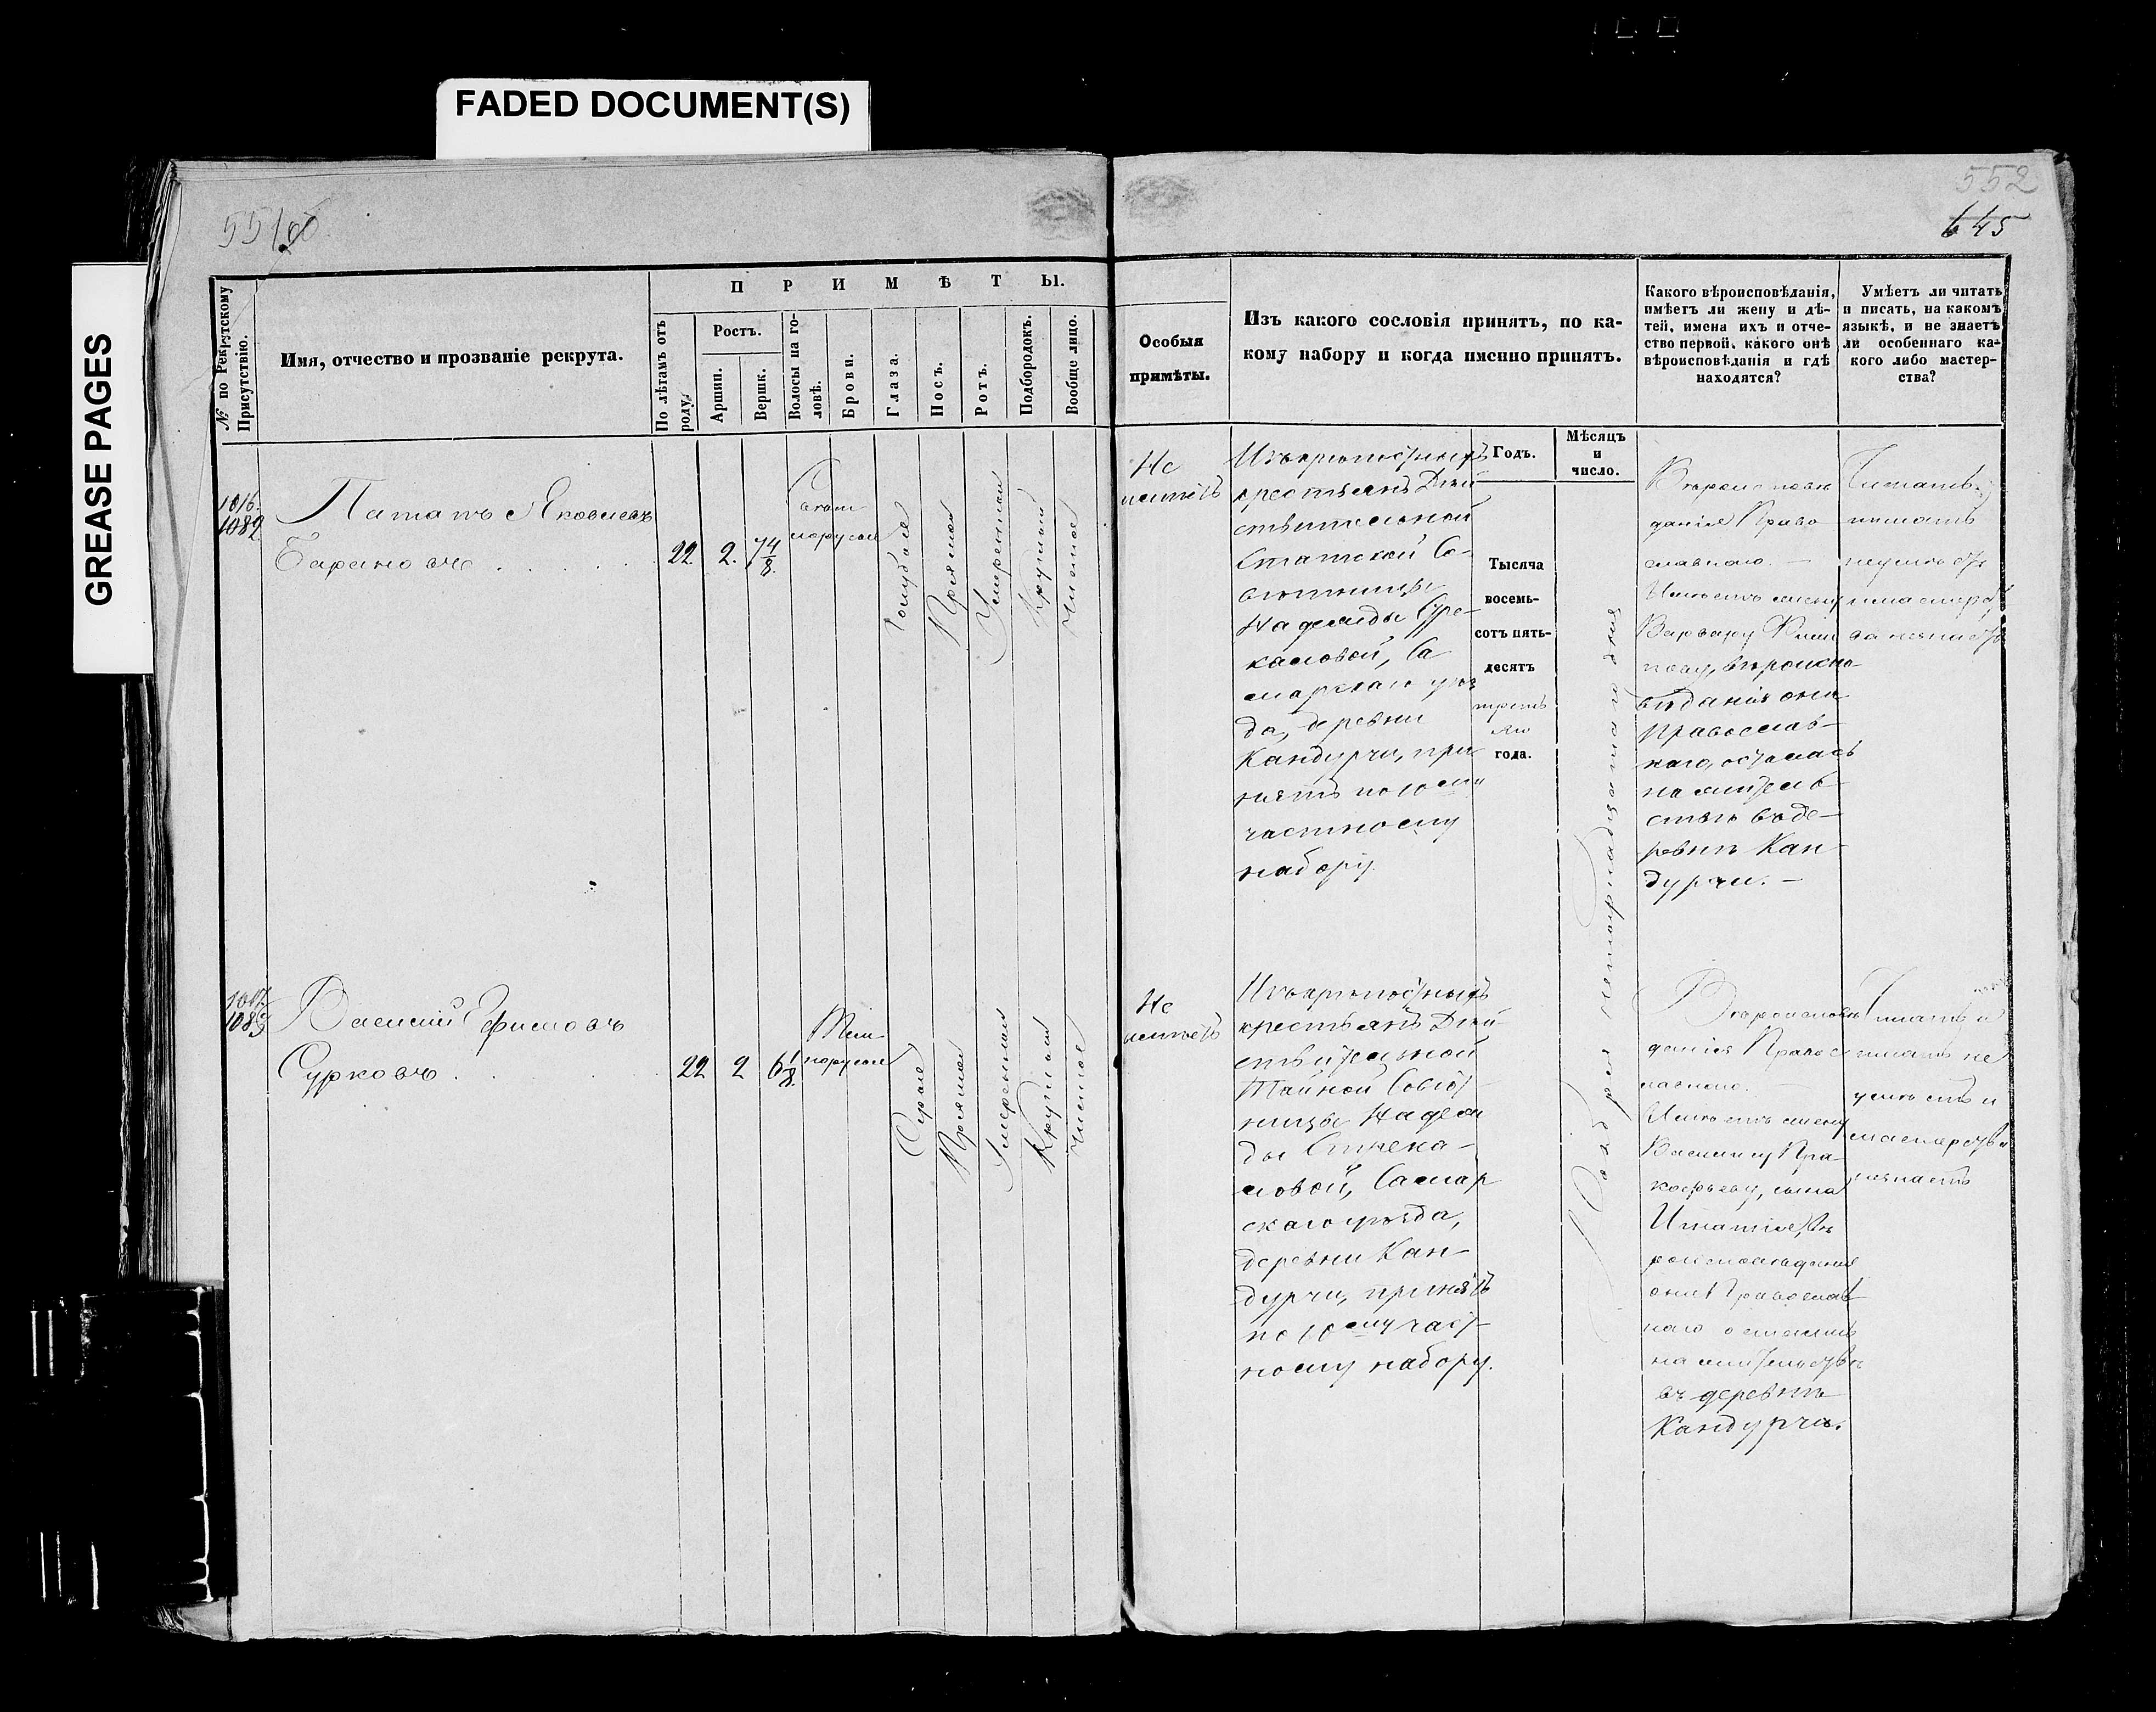 FADED DOCUMENT(S)
GREASE PAGES
551об
552
645
№ по Рекрутскому
Присутствію.
Имя, отчество и прозваніе рекрута.
П Р И М Ѣ Т Ы.
По лѣтамъ отъ
роду.
Ростъ.
Аршин.
Вершк.
Волосы на го-
ловѣ.
Брови.
Глаза.
Носъ.
Ротъ.
Подбородокъ.
Вообще лицо.
Особыя
примѣты.
Изъ какого сословія принятъ, по ка-
кому набору и когда именно принятъ.
Какого вѣроисповѣданія,
имѣетъ ли жену и дѣ-
тей, имена ихъ и отче-
ство первой, какого онѣ
вѣроисповѣданія и гдѣ
находятся?
Умѣетъ ли читать
и писать, на какомъ
языкѣ, и не знаетъ
ли особеннаго ка-
кого либо мастер-
ства?
Годъ.
Мѣсяцъ
и
число.
1016.
1082
Патапъ Яковлевъ
Бариновъ
22
2.
7 4/8
Свѣтло
русые
Голубые
Прямой
Умеренной
Круглой
Чистое
Не
имѣетъ
Изъ крѣпостныхъ
крестьянъ Дѣй
ствительной
Статской Со-
вѣтницы
Надежды
каловой, Са
марскаго уѣз
да, деревни
Кандурчи, при
нятъ по 10му
частному
набору.
Тысяча
восемь-
сотъ пять-
десятъ
третья
го
года.
Ноября четырнадцатаго дня
Вѣроисповѣ
данія Право
славнаго.
Имѣетъ жену
Варвару Филип
пову, вѣроиспо-
вѣданія они
православ-
наго, осталась
на житель-
ствѣ въ де-
ревнѣ Кан
дурчи.
Читать и
писать
неумѣетъ
и мастерст
ва незнаетъ
1017.
1083
Василий Ефимовъ
Сурковъ
22
2
6 1/8
Темно
русые
Серые
Прямой
Умеренной
Круглой
Чистое
Не
имѣетъ
Изъ крѣпостныхъ
крестьянъ Дѣй-
ствительной
Тайной Совѣт
ницы Надеж
ды
ловой, Самар
скаго уѣзда,
деревни Кан
дурчи, принятъ
по 10му част-
ному набору.
Вѣроисповѣ
данія Правос
лавнаго.
Имѣетъ жену
Василису Про
кофьеву, сына
Игнатія, вѣ
роисповѣданія
они Православ
наго остались
на жительствѣ
въ деревнѣ
Кандурчи.
Читать и
писать не
умѣетъ и
мастерства
незнаетъ